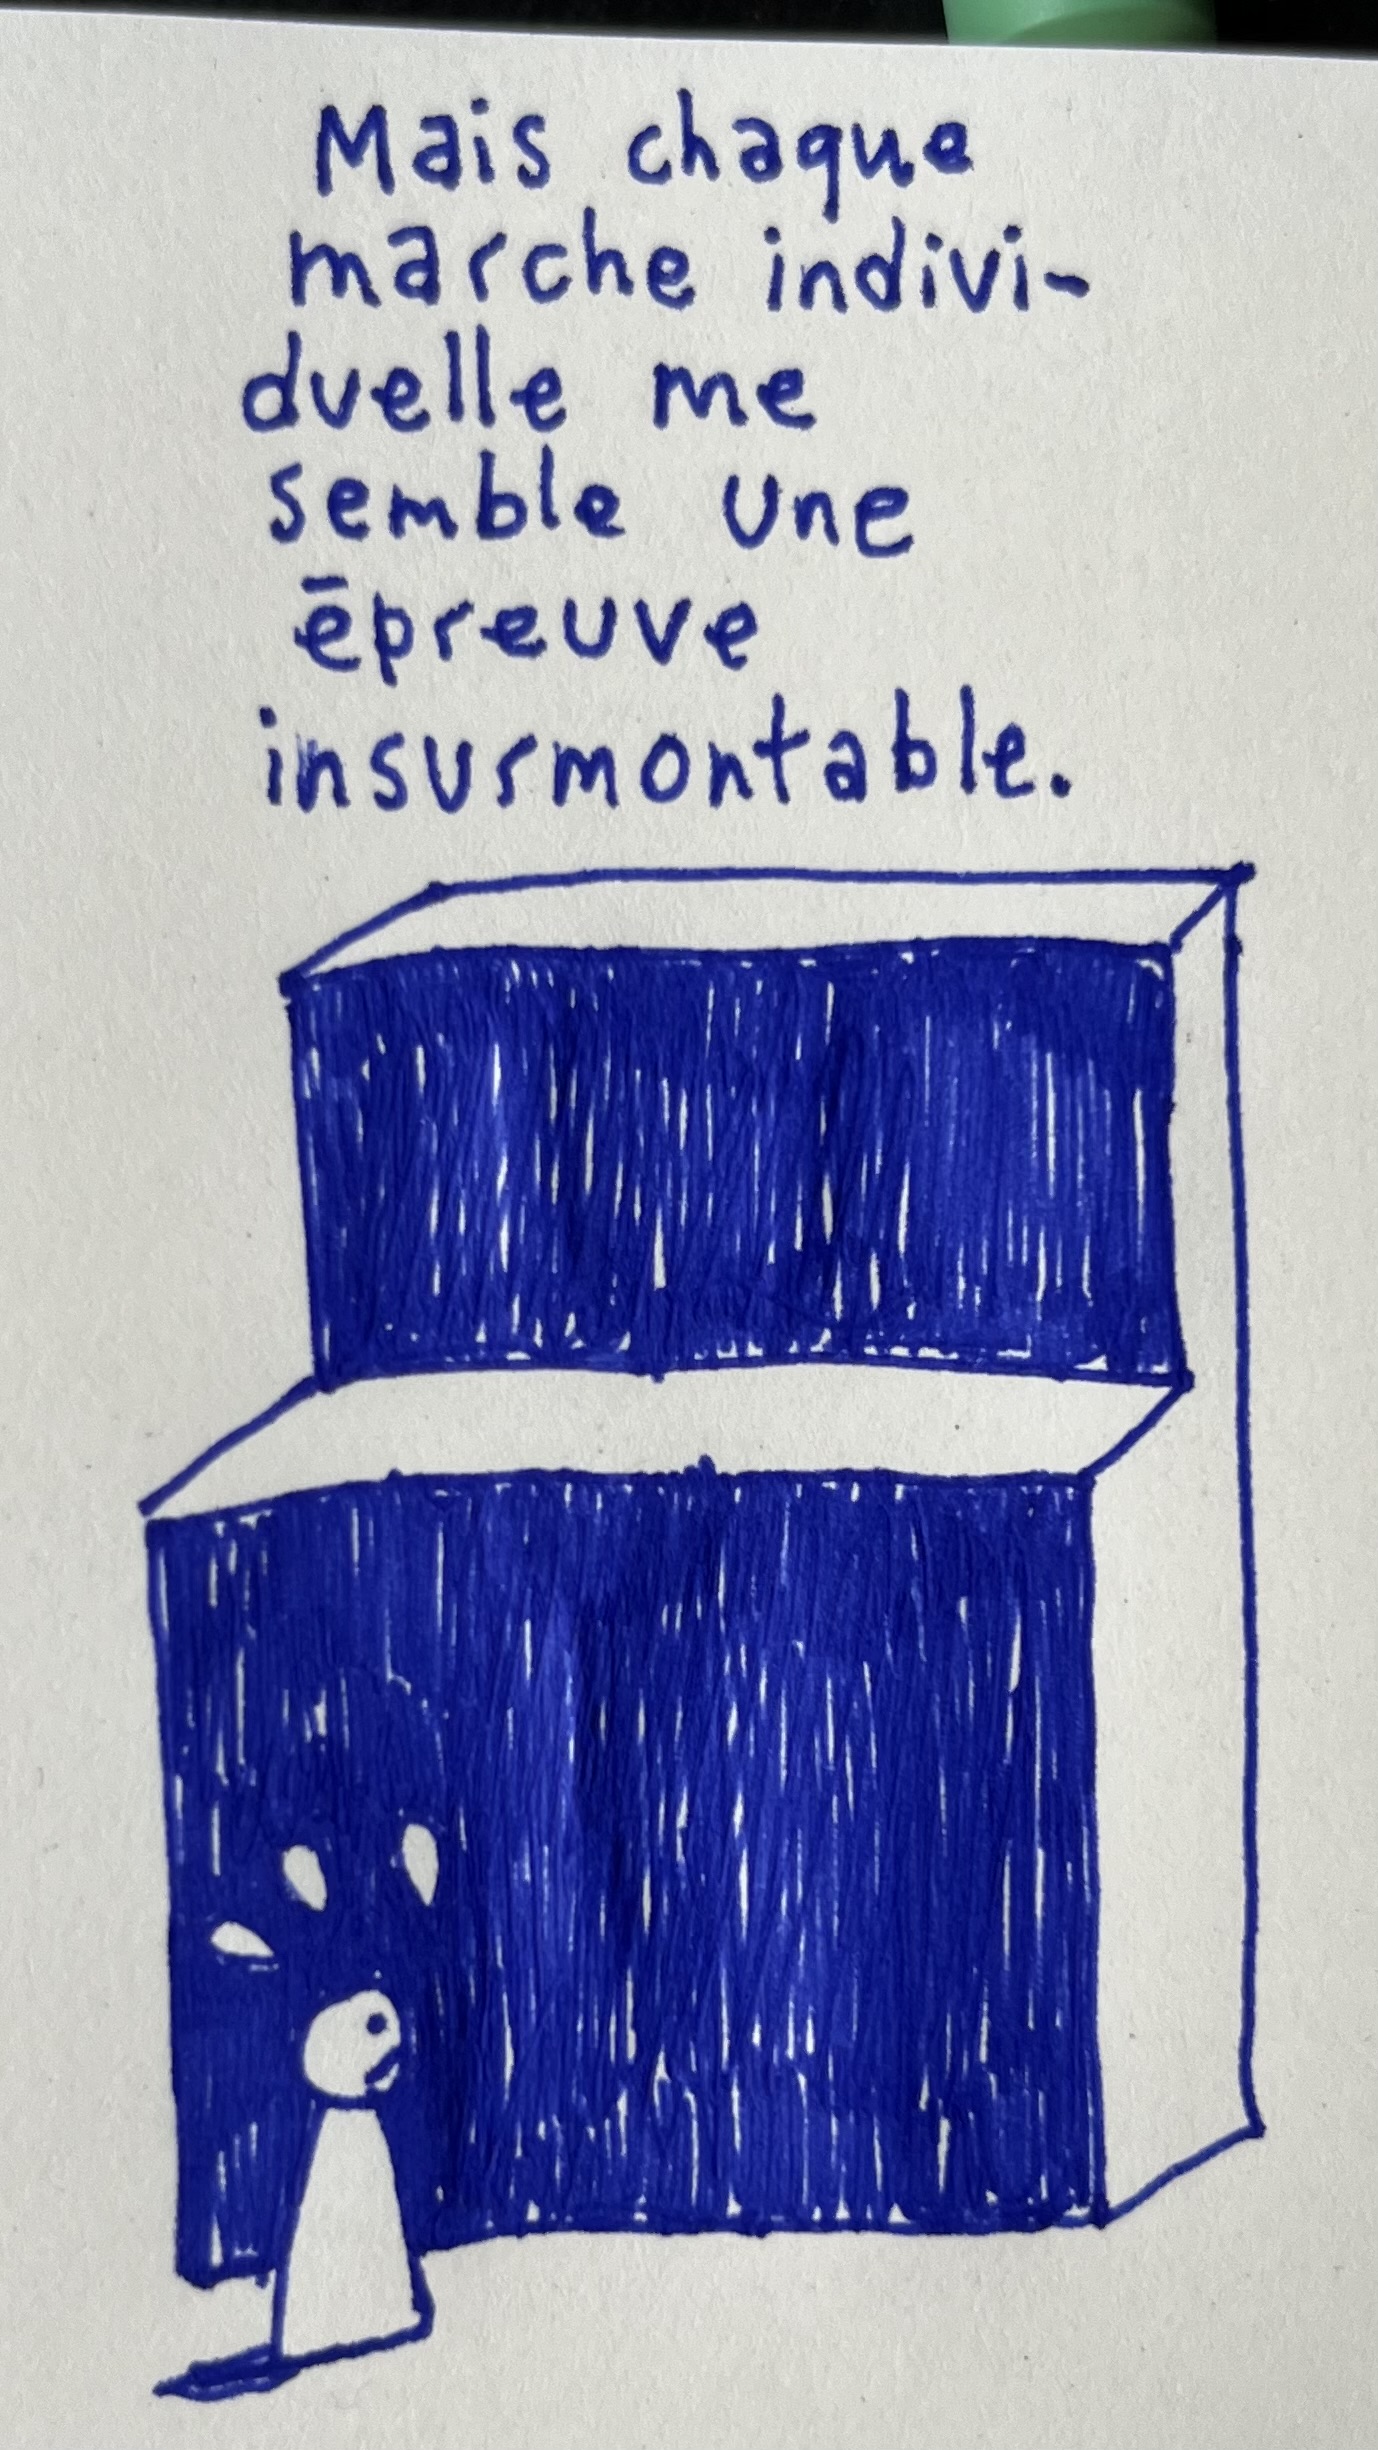 Mais chaque
marche indivi-
duelle me
semble une
épreuve
insurmontable.